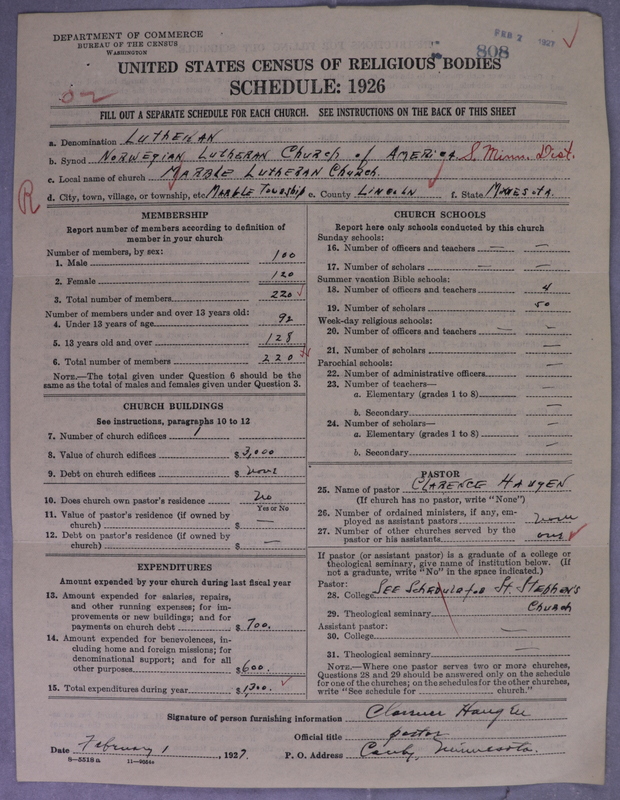 DEPARTMENT OF COMMERCE
BUREAU OF THE CENSUS
WASHINGTON
FEB 2 1927
808
UNITED STATES CENSUS OF RELIGIOUS BODIES
SCHEDULE: 1926
FILL OUT A SEPARATE SCHEDULE FOR EACH CHURCH. SEE INSTRUCTIONS ON THE BACK OF THIS SHEET
a. Denomination LUTHERAN
b. Synod NORWEGIAN LUTHERAN CHURCH of AMERICA. S. Minn. Dist.
c. Local name of church MARBLE LUTHERAN CHURCH.
R
d. City, town, village, or township, etc. MARBLE TOWNSHIP e. County LINCOLN f. State MINNESOTA.
MEMBERSHIP
Report number of members according to definition of
member in your church
Number of members, by sex:
1. Male 100
2. Female 120
3. Total number of members 220
Number of members under and over 13 years old:
4. Under 13 years of age 92
5. 13 years old and over 128
6. Total number of members 220
NOTE.—The total given under Question 6 should be
same as the total of males and females given under Question 3.
CHURCH BUILDINGS
See instructions, paragraphs 10 to 12
7. Number of church edifices 1
8. Value of church edifices $3,000
9. Debt on church edifices $ none
10. Does church own pastor's residence No
Yes or No
11. Value of pastor's residence (if owned by
church) $ —
12. Debt on pastor's residence (if owned by
church) $ —
EXPENDITURES
Amount expended by your church during last fiscal year
13. Amount expended for salaries, repairs,
and other running expenses; for im-
provements or new buildings; and for
payments on church debt $700.
14. Amount expended for benevolences, in-
cluding home and foreign missions; for
denominational support; and for all
other purposes $600.
15. Total expenditures during year $1300.
CHURCH SCHOOLS
Report here only schools conducted by this church
Sunday schools:
16. Number of officers and teachers — —
17. Number of scholars — —
Summer vacation Bible schools:
18. Number of officers and teachers 4
19. Number of scholars 50
Week-day religious schools:
20. Number of officers and teachers — —
21. Number of scholars —
Parochial schools:
22. Number of administrative officers —
23. Number of teachers—
a. Elementary (grades 1 to 8) —
b. Secondary —
24. Number of scholars—
a. Elementary (grades 1 to 8) —
b. Secondary —
PASTOR
25. Name of pastor CLARENCE HAUGEN
(If church has no pastor, write "None")
26. Number of ordained ministers, if any, em-
ployed as assistant pastors none
27. Number of other churches served by the
pastor or his assistants one
If pastor (or assistant pastor) is a graduate of a college or
theological seminary, give name of institution below. (If
not a graduate, write "No" in the space indicated.)
Pastor:
28. College SEE Schedule for St. Stephen's
29. Theological seminary Church
Assistant pastor:
30. College —
31. Theological seminary —
NOTE.—Where one pastor serves two or more churches,
Questions 28 and 29 should be answered only on the schedule
for one of the churches; on the schedules for the other churches,
write "See schedule for church."
Signature of person furnishing information Clarence Haugen
Official title pastor
Date February 1, 1927. P. O. Address Canby, Minnesota.
8—5518 a